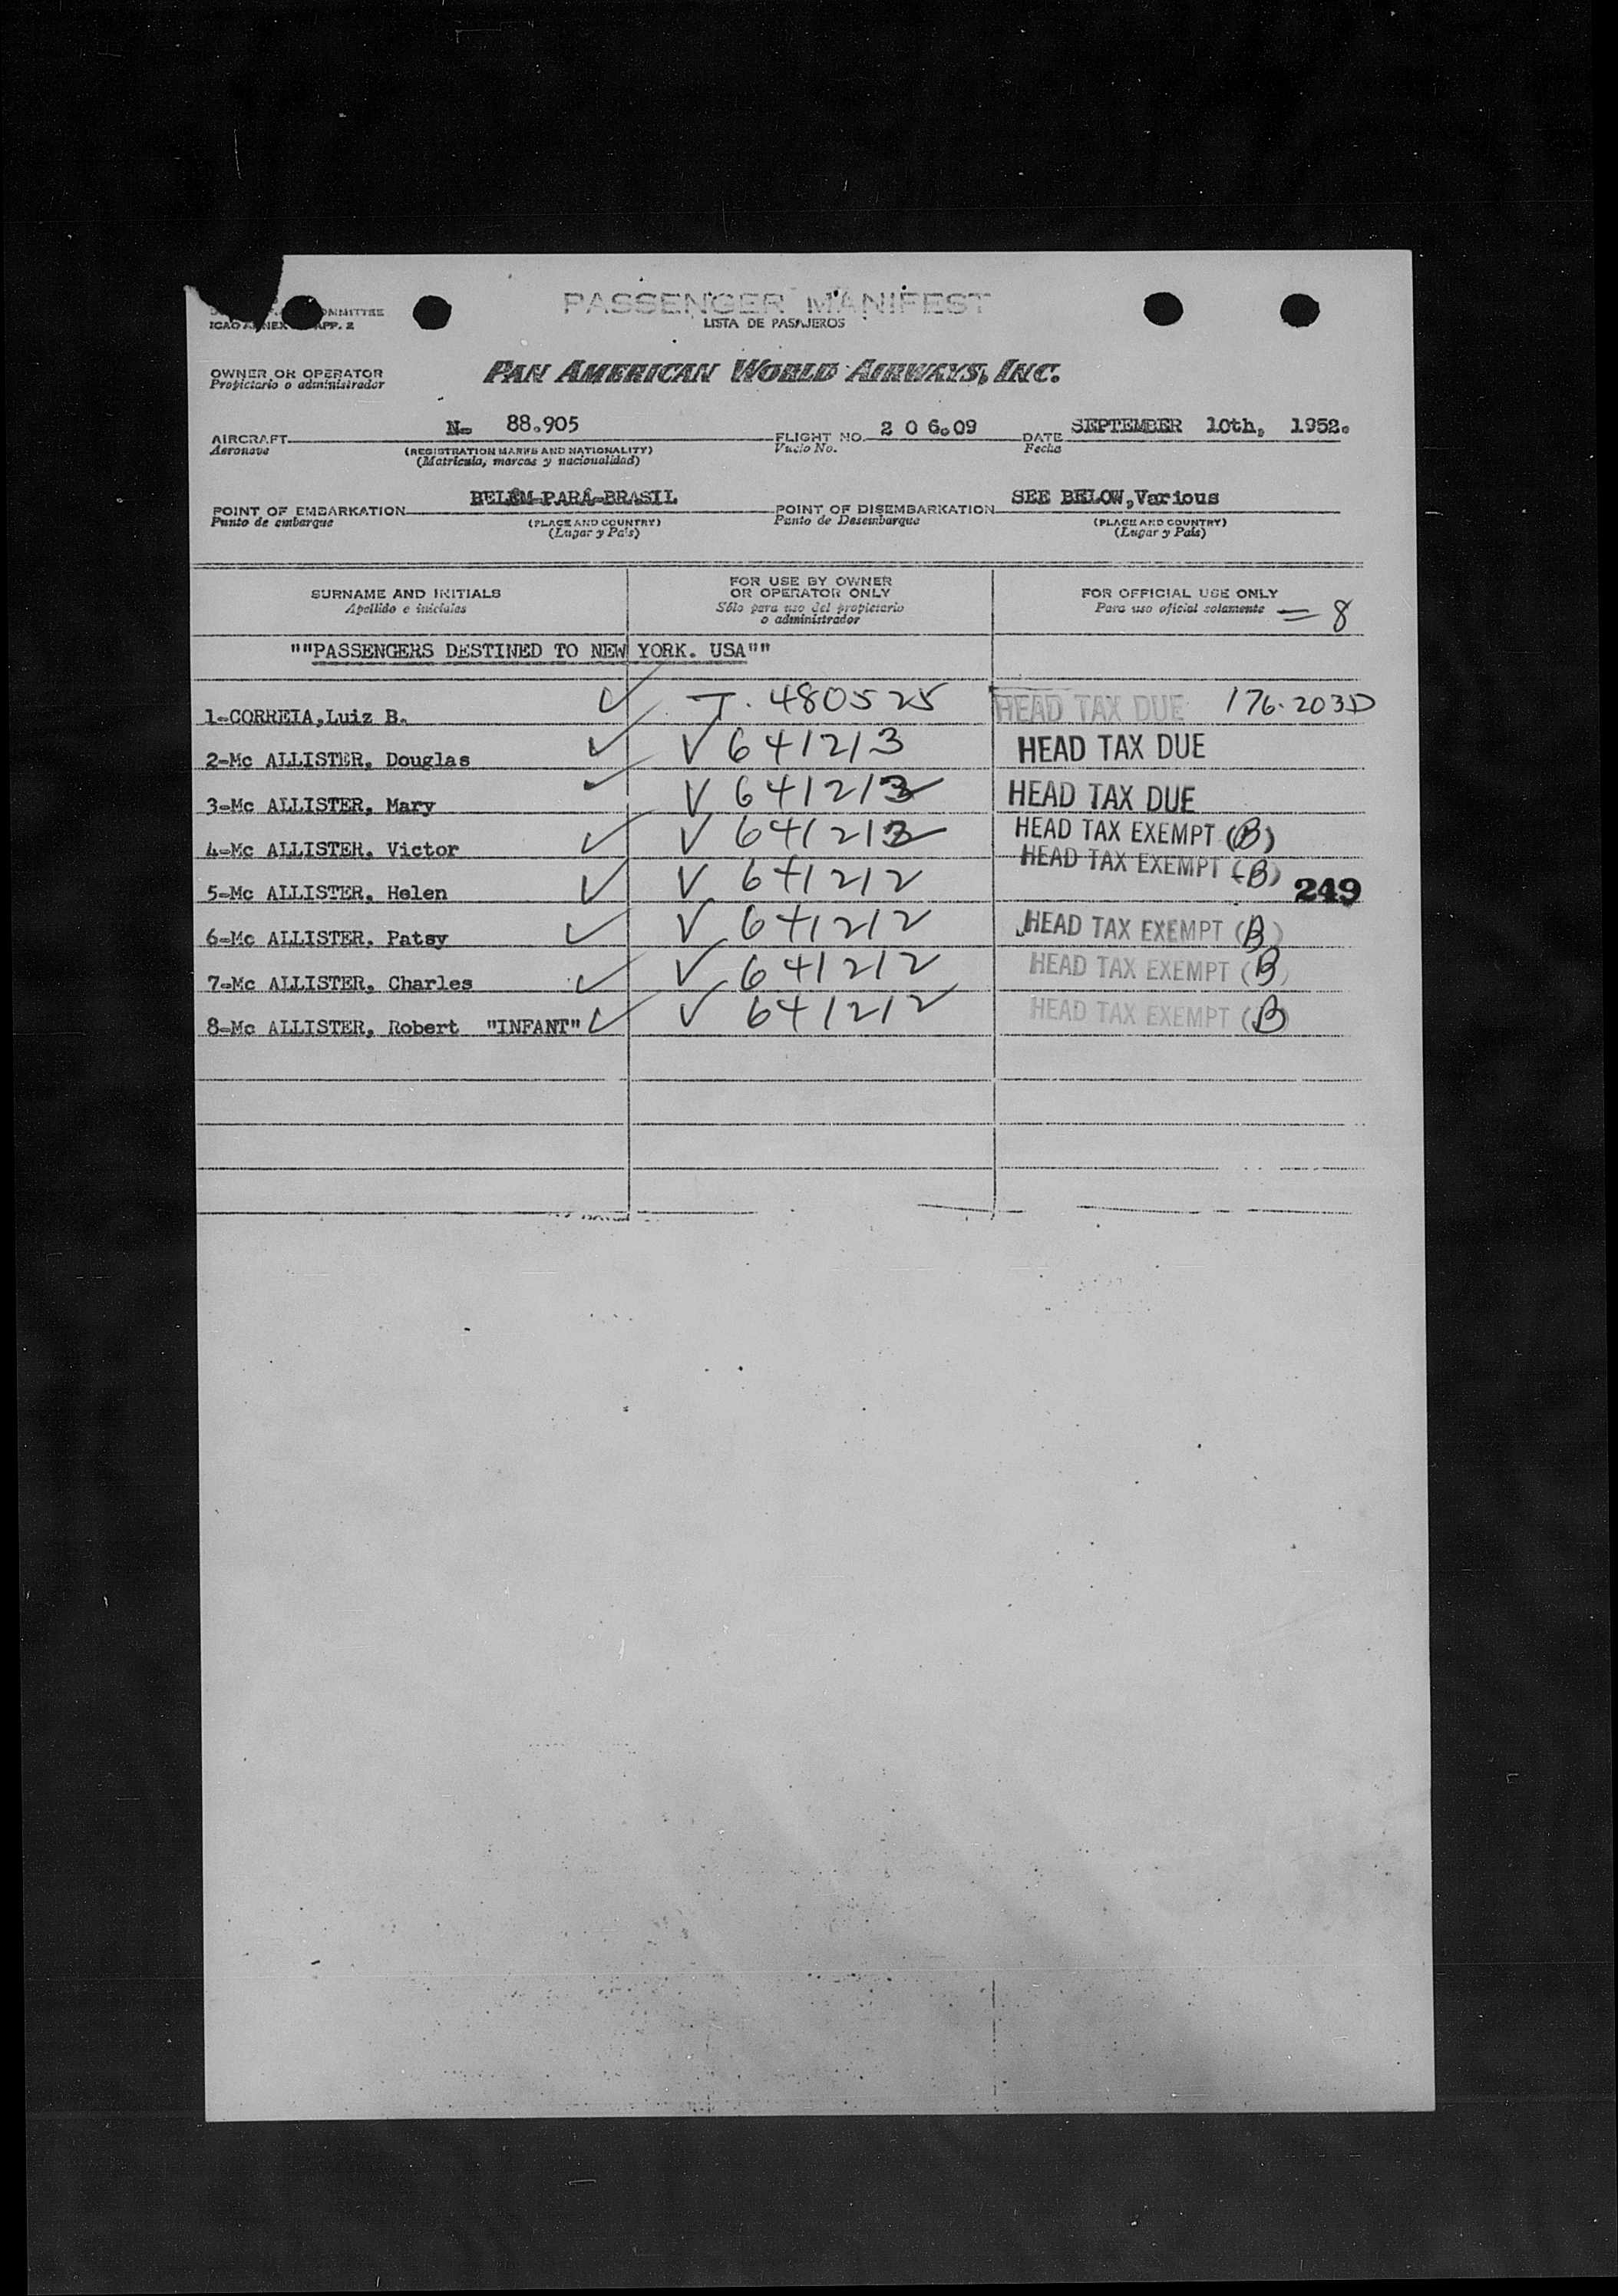 PASSENGER MANIFEST
LISTA DE PASAJEROS
COMMITTEE
ICAO ANNEX APP. 2
OWNER OR OPERATOR
Propietario o administrador
PAN AMERICAN WORLD AIRWAYS, INC.
AIRCRAFT N- 88.905 FLIGHT NO. 2 0 6.09 DATE SEPTEMBER 10th, 1952.
Aeronave (REGISTRATION MARKS AND NATIONALITY) Vuelo No. Fecha
(Matrícula, marcas y nacionalidad)
POINT OF EMBARKATION BELÉM-PARÁ-BRASIL POINT OF DISEMBARKATION SEE BELOW,Various
Punto de embarque (PLACE AND COUNTRY) Punto de Desembarque (PLACE AND COUNTRY)
(Lugar y País) (Lugar y País)
SURNAME AND INITIALS FOR USE BY OWNER OR OPERATOR ONLY FOR OFFICIAL USE ONLY
Apellido e iniciales Sólo para uso del propietario o administrador Para uso oficial solamente = 8
""PASSENGERS DESTINED TO NEW YORK. USA""
1-CORREIA,Luiz B. T. 480525 HEAD TAX DUE 176.203D
2-Mc ALLISTER, Douglas V 641213 HEAD TAX DUE
3-Mc ALLISTER, Mary V 641213 HEAD TAX DUE
4-Mc ALLISTER, Victor V 641213 HEAD TAX EXEMPT (B)
5-Mc ALLISTER, Helen V 641212 HEAD TAX EXEMPT (B) 249
6-Mc ALLISTER, Patsy V 641212 HEAD TAX EXEMPT (B)
7-Mc ALLISTER, Charles V 641212 HEAD TAX EXEMPT (B)
8-Mc ALLISTER, Robert "INFANT" V 641212 HEAD TAX EXEMPT (B)